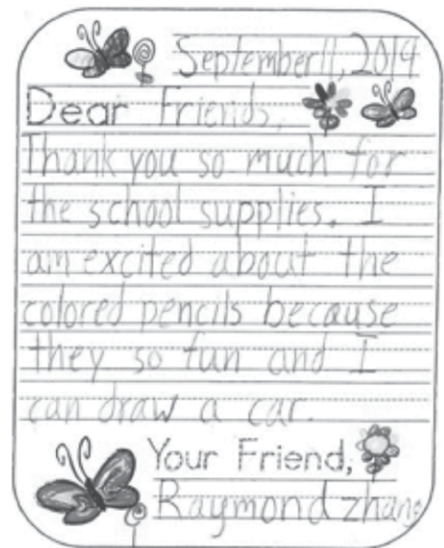 September 11, 2014
Dear Friends,
Thank you so much for
the school supplies. I
am excited about the
colored pencils because
they so fun and I
can draw a car.
Your Friend,
Raymond zhang